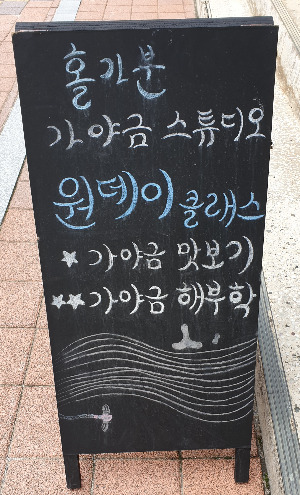 홀가분
가야금 스튜디오
원데이 클래스
★ 가야금 맛보기
★★ 가야금 해부학